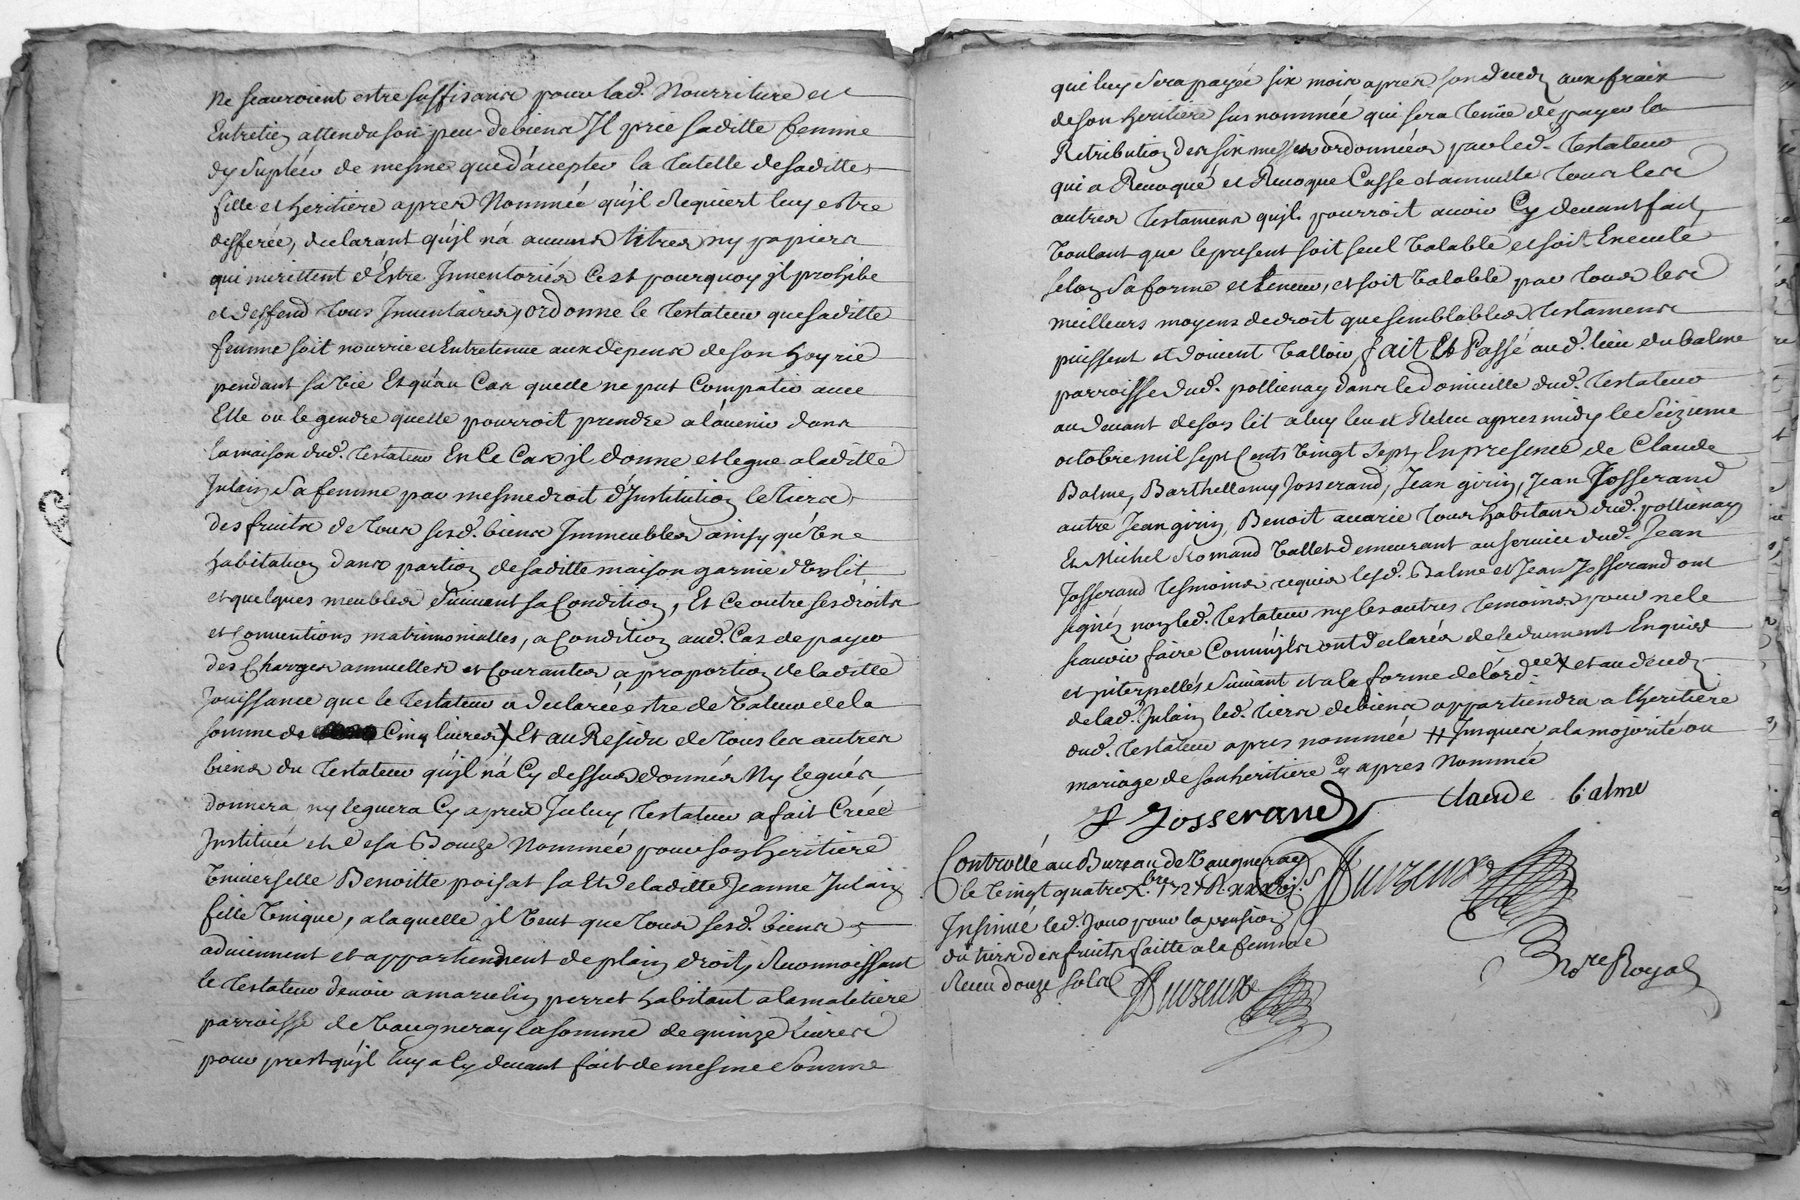 ne scauroient estre suffisans pour lad. Nourriture et
Entretien attendu son peu de biens Il prie saditte femme
dy supleer de mesme que d'accepter la tutelle de saditte
fille et heritiere apres Nommée qu'jl Requiert luy estre
defferée, declarant qu'jl n'à aucuns titres ny papiers
qui merittent d'Estre Jnuentoriés Cest pourquoy jl prohibe
et deffend tous Jnuentaires, ordonne le Testateur que saditte
femme soit nourrie et Entretenue aux depens de son hoyrie
pendant sa vie Et qu'au Cas quelle ne put Compatir auec
Elle ou le gendre quelle pourroit prendre a l'auenir dans
la maison dud. Testateur En Ce Cas jl donne et legue a laditte
Julain sa femme par mesme droit d'Jnstitution le tiers
des fruits de tous sesd. biens Jmmeubles ainsy qu'Vne
habitation dans portion de saditte maison garnie d'Vn lit
et quelques meubles Suiuant sa Condition, Et Ce outre ses droits
et Conuentions matrimonialles, a Condition aud. Cas de payer
des Charges annuelles et Courantes a proportion de laditte
jouissance que le Testateur a declarée estre de valeur de la
somme de Cinq liures X Et au Residu de tous les autres
biens du Testateur qu'jl n'à Cy dessus donnés Ny legués
donnera ny leguera Cy apres Jceluy Testateur a fait Créé
Jnstitué et de sa Bouche Nommée pour son heritiere
Vniverselle Benoitte poisat sa et de laditte Jeanne Julain
fille Vnique, a laquelle jl veut que tous sesd. biens
aduiennent et appartiennent de plain droit, Reconnoissant
le Testateur deuoir a marcelin perret habitant a la maletiere
parroisse de Vaugneray la somme de quinze liures
pour prest qu'jl luy a Cy deuant fait de mesme Somme
qui luy sera payée six mois apres son deced aux frais
de son heritiere sus nommée qui sera tenüe de payer la
Retribution des six messes ordonnées par led. Testateur
qui a Reuoqué et Reuoque Casse et annulle tous les
autres Testamens qu'jl pourroit auoir Cy deuant fait,
Voulant que le present soit seul Valable et soit Executé
selon sa forme et teneur, et soit Valable par tous les
meilleurs moyens de droit que semblables Testamens
puissent et doiuent Valloir fait Et Passé aud. lieu du balme
parroisse dud. pollienay dans le domicille dud. Testateur
au deuant de son lit a luy leu et Releu apres midy le Seizieme
octobre mil sept Cents Vingt sept, En presence de Claude
Balme, Barthellemy Josserand, Jean girin, Jean Josserand
autre Jean girin, Benoit auarie tous habitans dud. pollienay
Et Michel Romand Vallet demeurant au seruice dud. Jean
Josserand tesmoins requis lesd. Balme et Jean Josserand ont
signéz non led. Testateur ny les autres temoins pour ne le
scauoir faire Comm'jls ont declarés de ce duement Enquis
et jnterpellés Suiuant et a la forme de l'ord.ce X et au deced
de lad. Julain led. tiers de biens appartiendra a l'heritiere
dud. Testateur apres nommée # Jusques a la majorité ou
mariage de son heritiere Cy apres Nommée
J Josserand Claude balme
Controllé au Bureau de Vaugneray
le Vingt quatre X.bre 1727 R
Insinué led. Jour pour la pension
du tiers des fruits faitte a la femme
Receu douze sols
No.re Royal